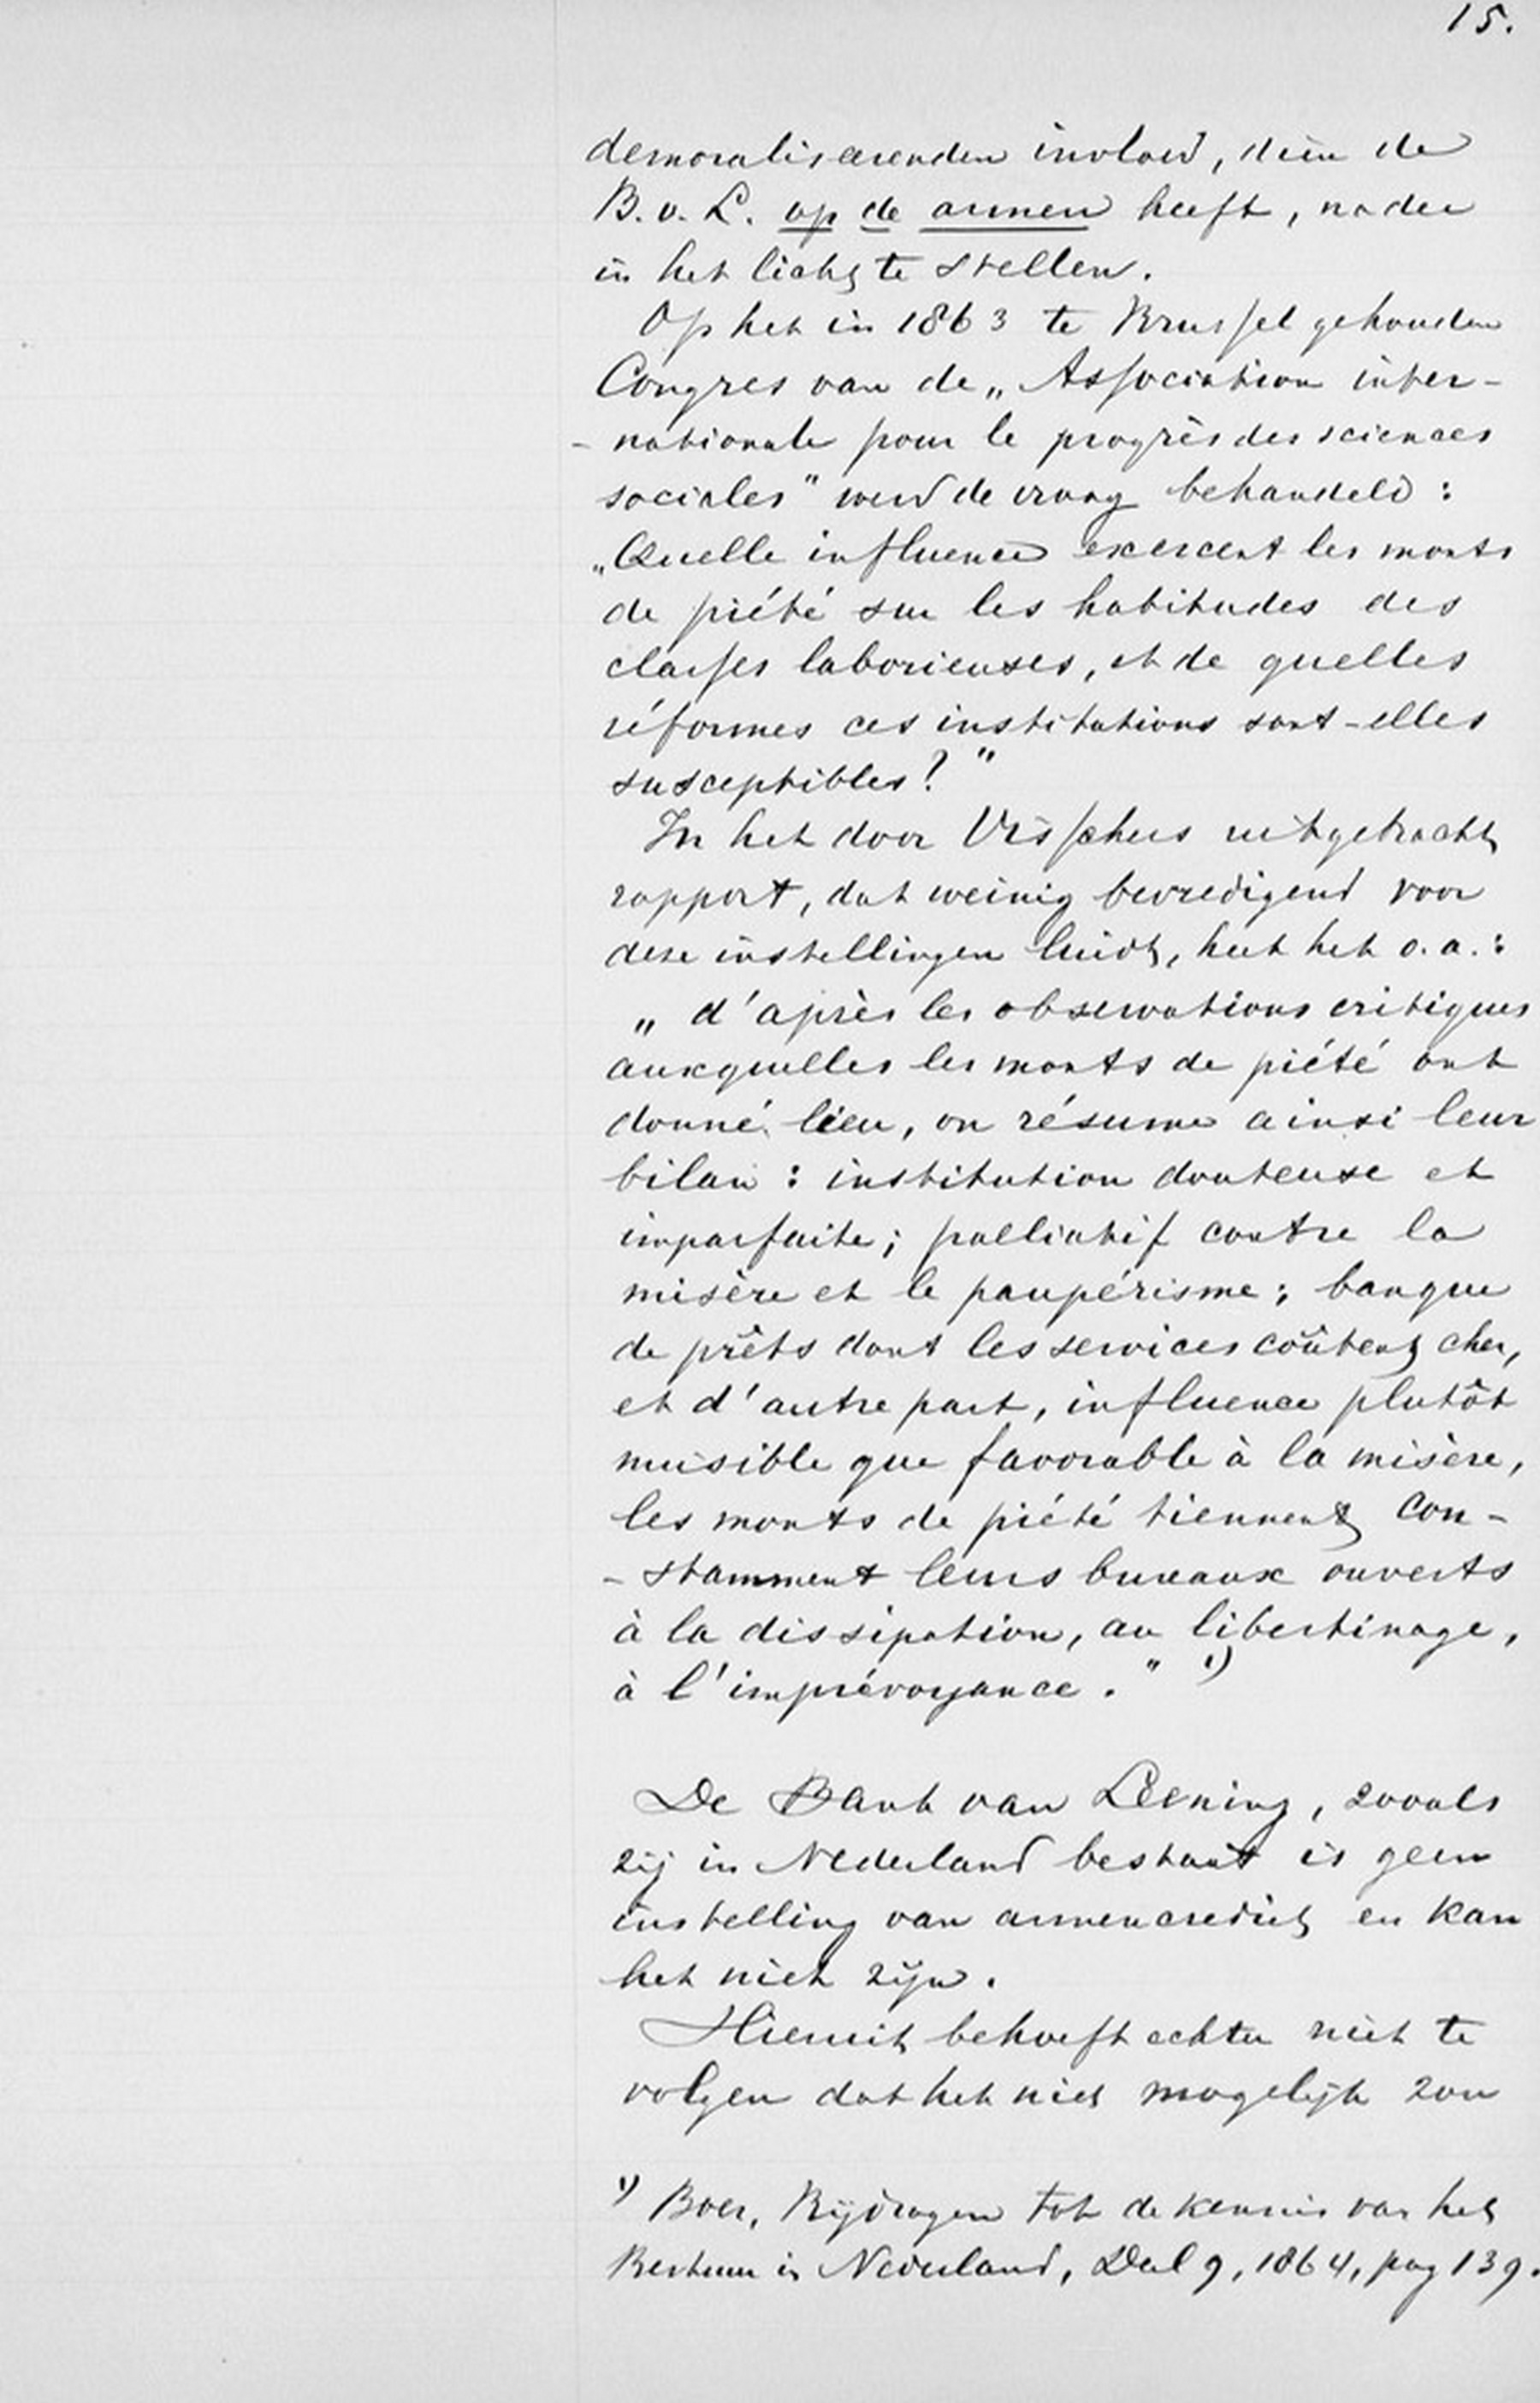 15.
demoraliseerenden invloed, dien de
B. v. L. op de armen heeft, nader
in het licht te stellen.
Op het in 1863 te Brussel gehouden
Congres van de „Association inter-
-nationale pour le progrès des sciences
sociales" werd de vraag behandeld:
„Quelle influence exercent les monts
de piété sur les habitudes des
classes laborieuses, et de quelles
réformes ces institutions sont-elles
susceptibles?"
In het door uitgebracht
rapport, dat weinig bevredigend voor
deze instellingen luidt, heet het o.a.:
„d'après les observations critiques
auxquelles les monts de piété ont
donné lieu, on résume ainsi leur
bilan: institution douteuse et
imparfaite; palliatif contre la
misère et le paupérisme; banque
de prêts dont les services coûtent cher,
et d'autre part, influence plutôt
nuisible que favorable à la misère,
les monts de piété tiennent con-
-stamment leurs bureaux ouverts
à la dissipation, au libertinage,
à l'imprévoyance." 1)
De Bank van Leening, zooals
zij in Nederland bestaat is geen
instelling van armencrediet en kan
het niet zijn.
Hieruit behoeft echter niet te
volgen dat het niet mogelijk zou
1) Boer, Bijdragen tot de kennis van het
Bestuur in Nederland, Deel 9, 1864, pag 139.